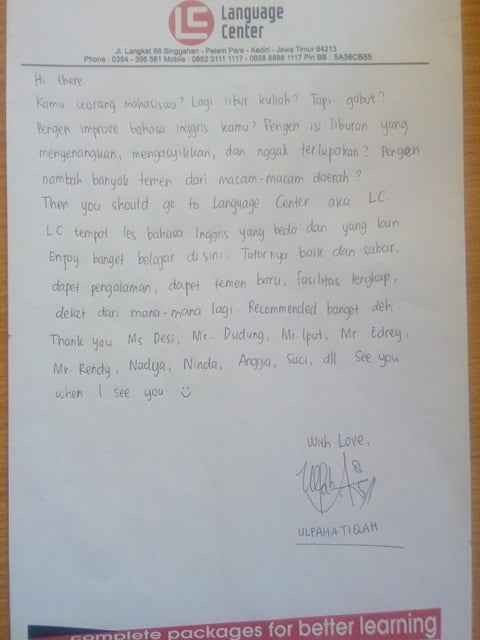 LC Language
Center
Jl. Langkat 88 Singgahan - Pelem Pare - Kediri - Jawa Timur 64213
Phone : 0354 - 396 561 Mobile : 0852 3111 1117 - 0858 6888 1117 Pin BB : 5A38CB55
Hi there.
Kamu ceorang mahasiswa? Lagi libur kuliah? Tapi gabut?
Pengen improve bahasa inggris kamu? Pengen isi liburan yang
menyenangkan, mengasyikkan, dan nggak terlupakan? Pengen
nambah banyak temen dari macam-macam daerah?
Then you should go to Language Center aka LC.
LC tempat les bahasa Inggris yang beda dari yang lain
Enjoy banget belajar disini. Tutornya baik dan sabar,
dapet pengalaman, dapet temen baru, fasilitas lengkap,
deket dari mana-mana lagi. Recommended banget deh.
Thank you Ms. Desi, Mr. Dudung, Mr Iput, Mr. Edrey,
Mr. Rendy, Nadya, Ninda, Anggia, Suci, dll. See you
when I see you ☺
With Love,
ULFAHATIQAH
complete packages for better learning